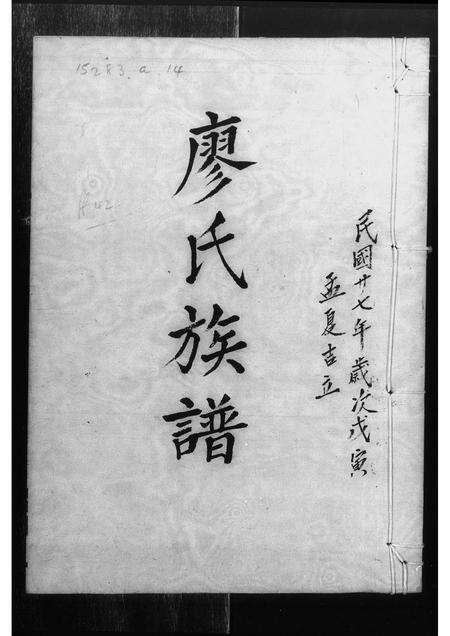 民國廿七年歲次戊寅
孟夏吉立
廖氏族譜
15283.a.14